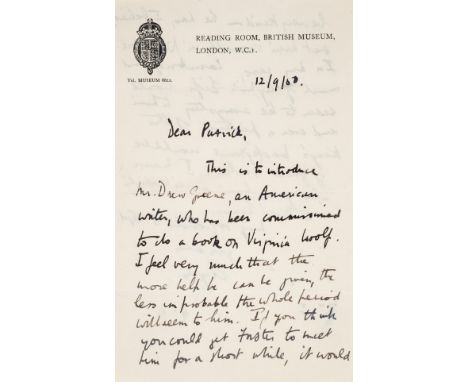 READING ROOM, BRITISH MUSEUM,
LONDON, W.C.1.
Tel. MUSEUM 8321.
12/9/60.
Dear Patrick,
This is to introduce
Mr. Drew Greene, an American
writer, who has been commissioned
to do a book on Virginia Woolf.
I feel very much that the
more help he can be given, the
less improbable the whole period
will seem to him. If you think
you could get Forster to meet
him for a short while, it would